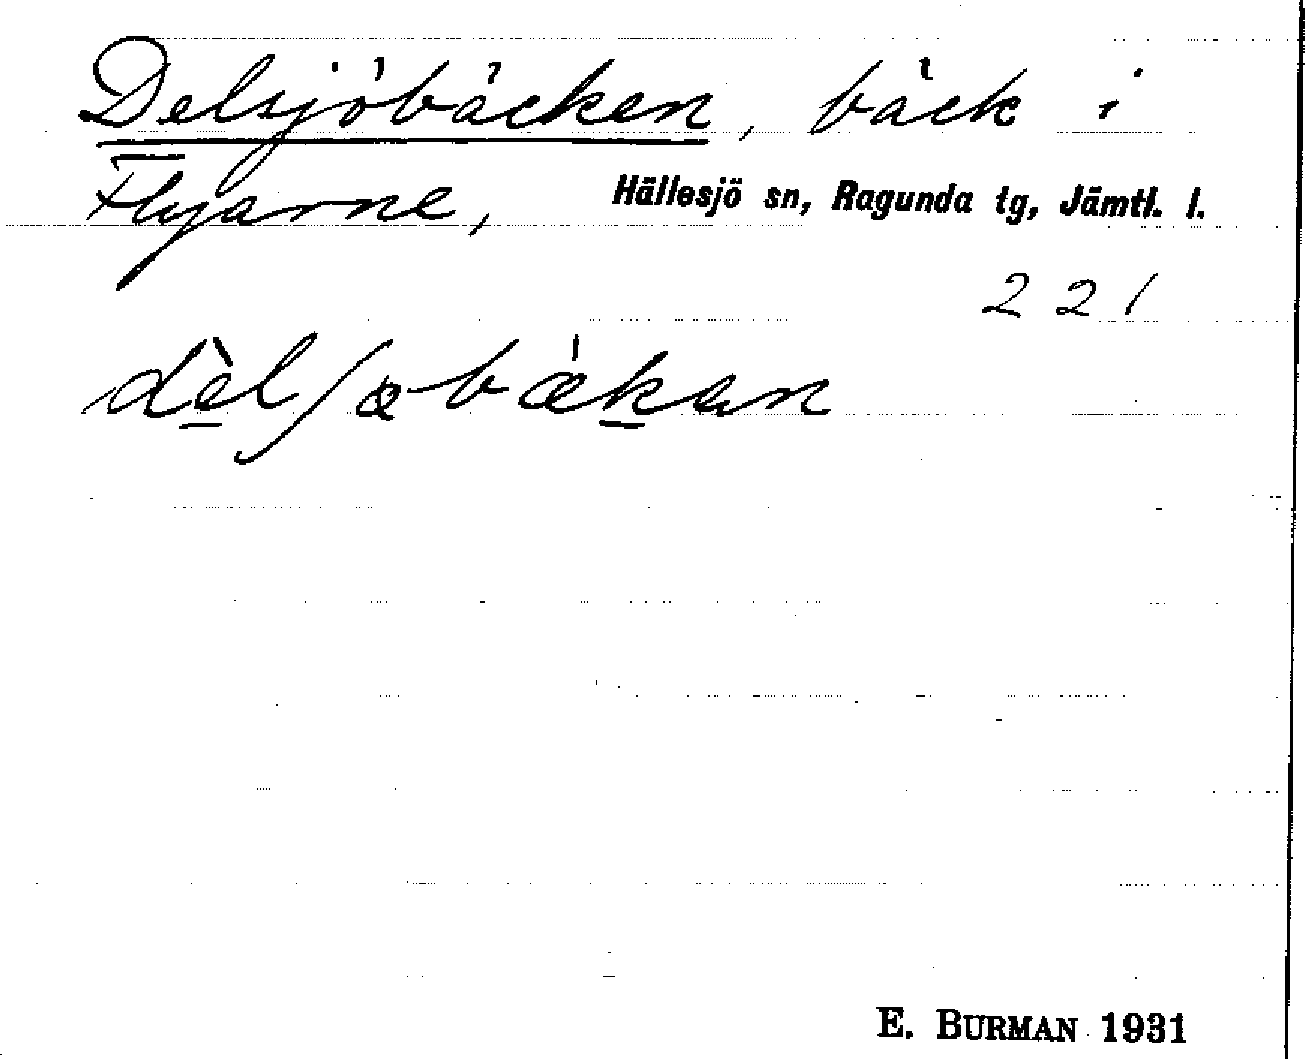 Delsjöbäcken, bäck i
Flyarne, Hällesjö sn, Ragunda tg, Jämtl. l.
221
dèlʃæbækan
E. BURMAN 1931